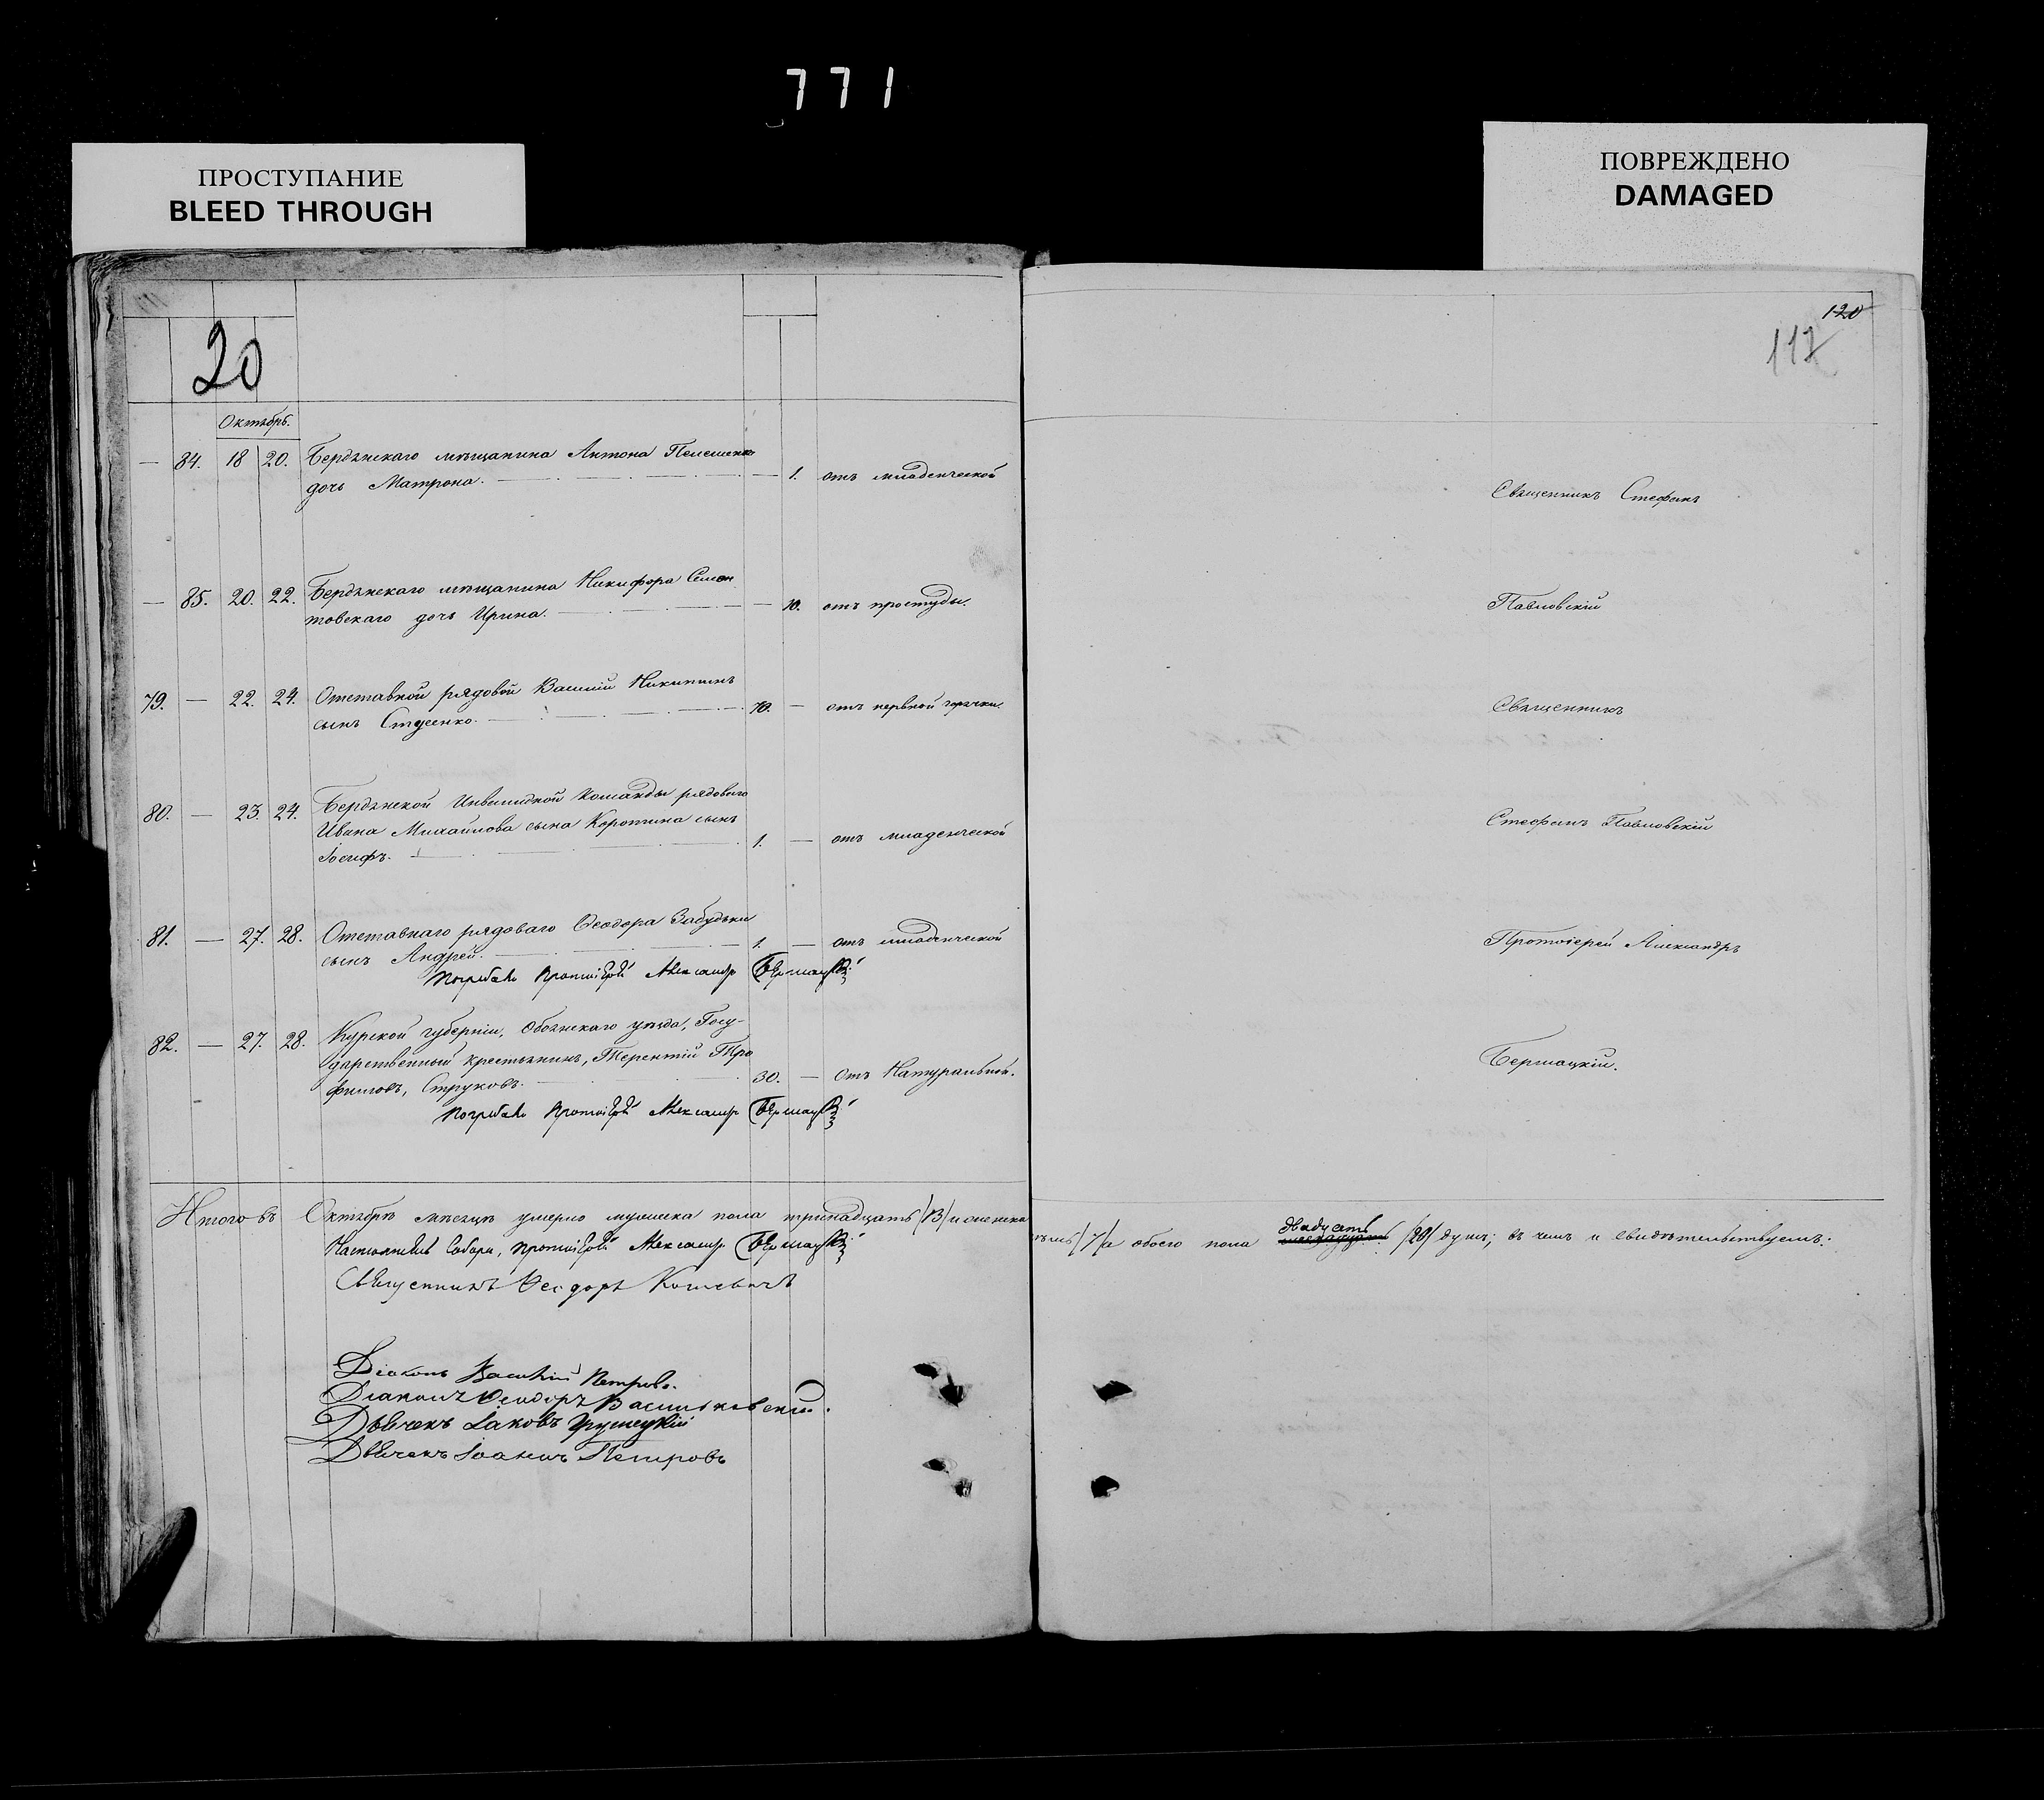 771
ПРОСТУПАНИЕ
BLEED THROUGH
ПОВРЕЖДЕНО
DAMAGED
120
117
20
Октябрь.
— 84. 18 20. Бердянскаго мѣщанина Антона
дочь Матрона. — 1. отъ младенческой
Священникъ Стефанъ
— 85. 20. 22. Бердянскаго мѣщанина Никифора Семен
товскаго дочь Ирина. — 10. отъ простуды.
Павловскій
79. — 22. 24. Отставной рядовой Василій Никитинъ
сынъ Стусенко. 70. — отъ нервной горячки.
Священникъ
80. — 23. 24. Бердянской Инвалидной Команды рядоваго
Ивана Михайлова сына Коротина сынъ
Іосифъ. 1. — отъ младенческой
Стефанъ Павловскій
81. — 27. 28. Отставнаго рядоваго Ѳеодора
сынъ Андрей. 1. — отъ младенческой
Погребалъ Протоіерей Александръ Бермацкій
Протоіерей Александръ
82. — 27. 28. Курской губерніи, Обоянскаго уѣзда, Госу-
дарственный крестьянинъ, Терентій Тро
фимовъ, Струковъ. 30. — отъ Натуральной.
Погребалъ Протоіерей Александръ Бермацкій
Бермацкій.
Итого въ Октябрѣ мѣсяцѣ умерло мужеска пола тринадцать /13/ и женска /7/ а обоего пола двадцать /20/ душъ; въ чемъ и свидѣтельствуемъ:
Настоятель Собора, протоіерей Александръ Бермацкій
Священникъ Ѳеодоръ
Діаконъ Василій Петровъ.
Діаконъ Ѳеодоръ Васильковскій.
Дьячекъ Іаковъ Грушецкій
Дьячекъ Іоаннъ Петровъ